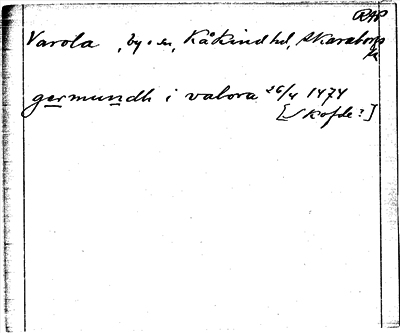 RAP
Varola, by o sn, Kåkind hd, Skaraborgs
lä
germundh i valora 26/4 1474
[Skofde?]